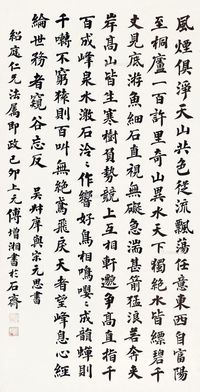 風煙俱淨天山共色從流飄蕩任意東西自富陽
至桐廬一百許里奇山異水天下獨絕水皆縹碧千
丈見底游魚細石直視無礙急湍甚箭猛浪若奔夾
岸高山皆生寒樹負勢競上互相軒邈爭高直指千
百成峰泉水激石泠〻作響好鳥相鳴嚶〻成韻蟬則
千囀不窮猿則百叫無絕鳶飛戾天者望峰息心經
綸世務者窺谷忘反 吳叔庠與宋元思書
紹庭仁兄法屬即政己卯上元傅增湘書於石齋